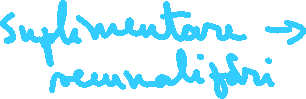 suplimentare →
semnalizări